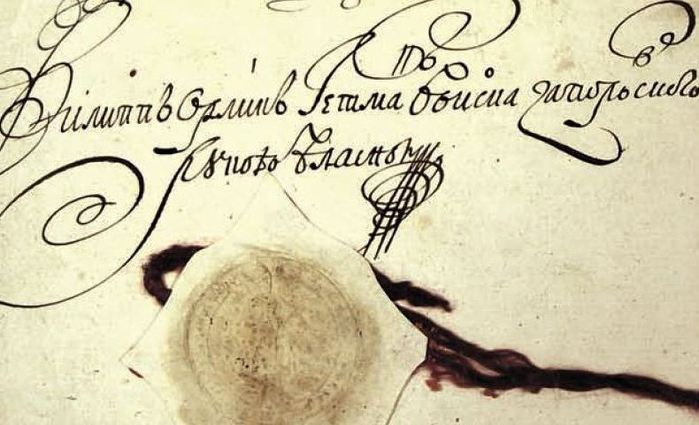 Филиппъ Орликъ Гетманъ Войска Запорожского
Рукою Власною